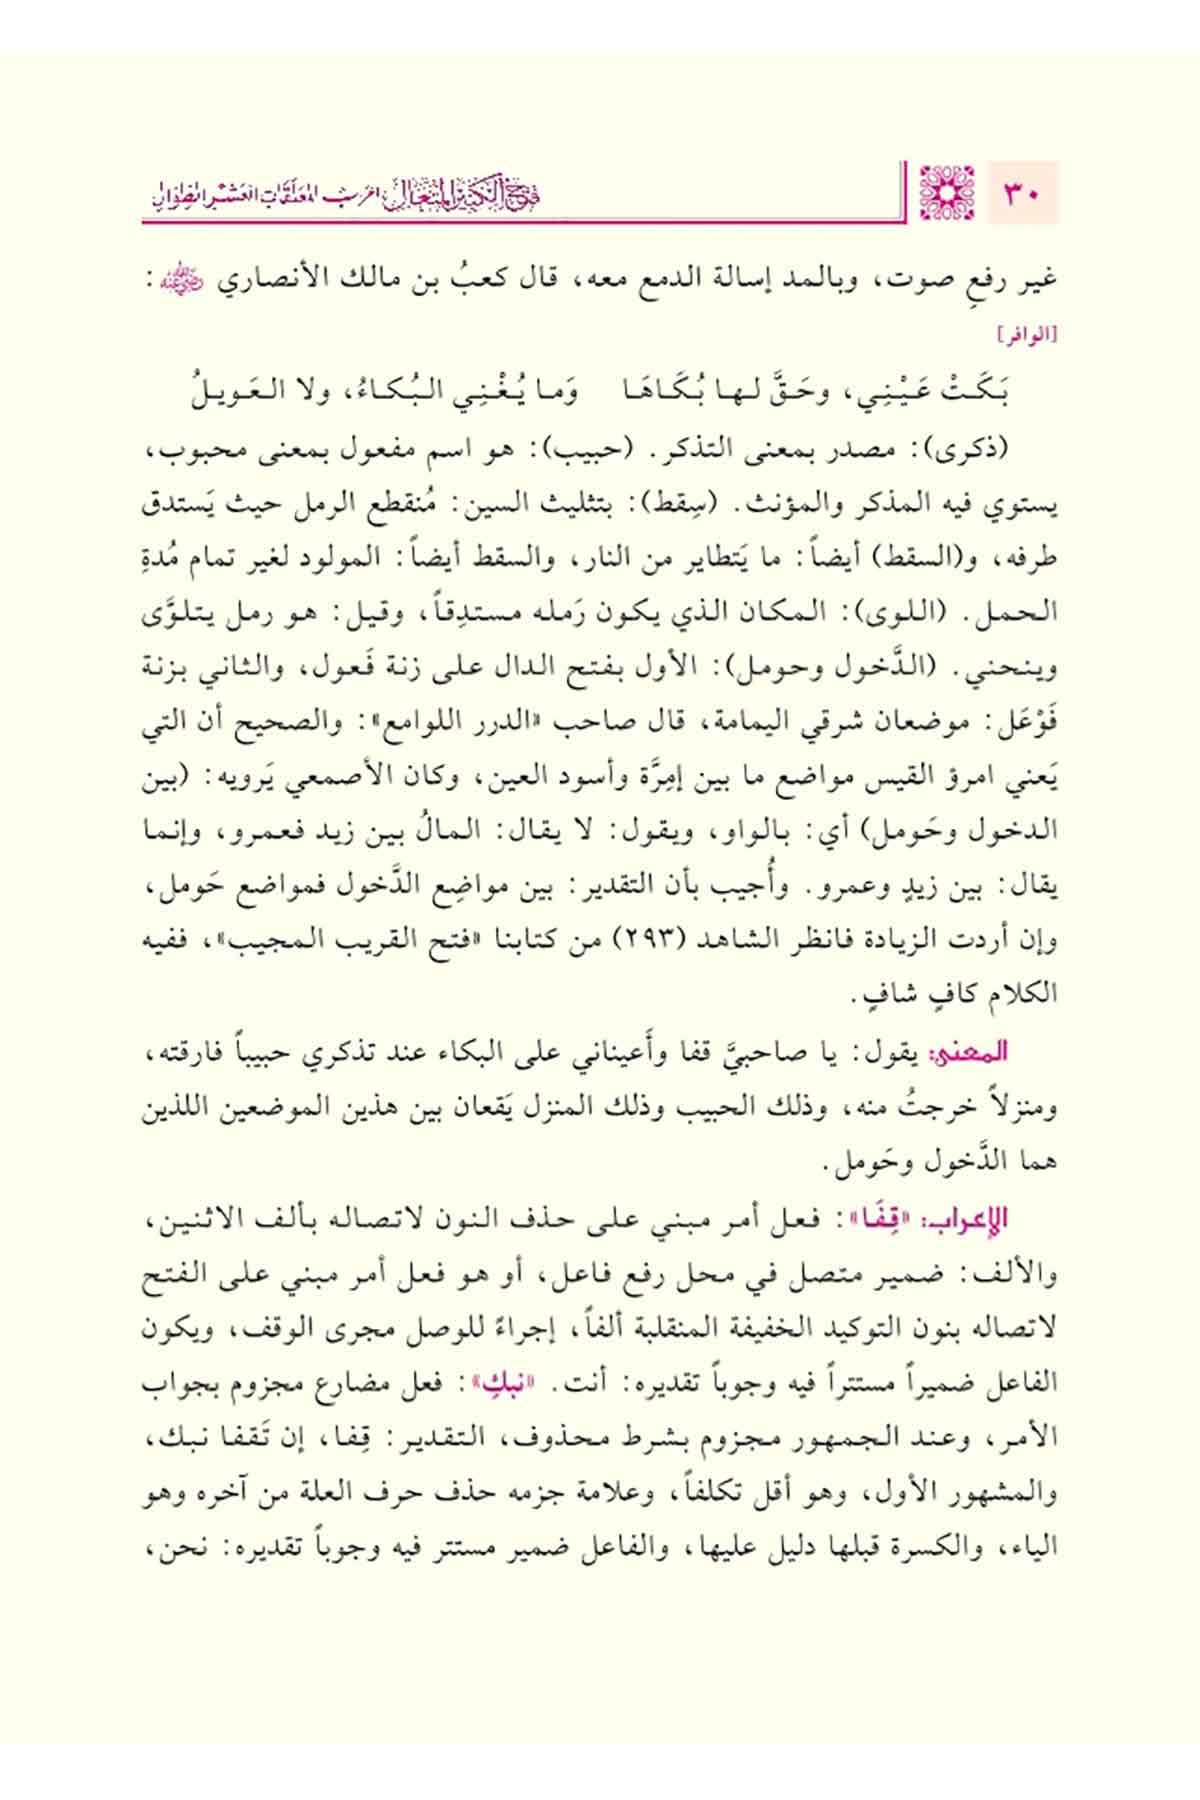 ٣٠
فتح الكبير المتعال إعراب المعلقات العشر الطوال
غير رفعِ صوت، وبالمد إسالة الدمع معه، قال كعبُ بن مالك الأنصاري رضي الله عنه :
[الوافر]
بَكَتْ عَيْنِي، وحَقَّ لها بُكَاهَا وَما يُغْنِي البُكاءُ، ولا العَويلُ
(ذكرى): مصدر بمعنى التذكر. (حبيب): هو اسم مفعول بمعنى محبوب،
يستوي فيه المذكر والمؤنث. (سِقط): بتثليث السين: مُنقطع الرمل حيث يَستدق
طرفه، و(السقط) أيضاً: ما يَتطاير من النار، والسقط أيضاً: المولود لغير تمام مُدةِ
الحمل. (اللوى): المكان الذي يكون رَمله مستدِقاً، وقيل: هو رمل يتلوَّى
وينحني. (الدَّخول وحومل): الأول بفتح الدال على زنة فَعول، والثاني بزنة
فَوْعَل: موضعان شرقي اليمامة، قال صاحب «الدرر اللوامع»: والصحيح أن التي
يَعني امرؤ القيس مواضع ما بين إمِرَّة وأسود العين، وكان الأصمعي يَرويه: (بين
الدخول وحَومل) أي: بالواو، ويقول: لا يقال: المالُ بين زيد فعمرو، وإنما
يقال: بين زيدٍ وعمرو. وأُجيب بأن التقدير: بين مواضِع الدَّخول فمواضع حَومل،
وإن أردت الزيادة فانظر الشاهد (٢٩٣) من كتابنا «فتح القريب المجيب»، ففيه
الكلام كافٍ شافٍ.
المعنى: يقول: يا صاحبيَّ قفا وأَعيناني على البكاء عند تذكري حبيباً فارقته،
ومنزلاً خرجتُ منه، وذلك الحبيب وذلك المنزل يَقعان بين هذين الموضعين اللذين
هما الدَّخول وحَومل.
الإعراب: «قِفَا»: فعل أمر مبني على حذف النون لاتصاله بألف الاثنين،
والألف: ضمير متصل في محل رفع فاعل، أو هو فعل أمر مبني على الفتح
لاتصاله بنون التوكيد الخفيفة المنقلبة ألفاً، إجراءً للوصل مجرى الوقف، ويكون
الفاعل ضميراً مستتراً فيه وجوباً تقديره: أنت. «نبكِ»: فعل مضارع مجزوم بجواب
الأمر، وعند الجمهور مجزوم بشرط محذوف، التقدير: قِفا، إن تَقفا نبك،
والمشهور الأول، وهو أقل تكلفاً، وعلامة جزمه حذف حرف العلة من آخره وهو
الياء، والكسرة قبلها دليل عليها، والفاعل ضمير مستتر فيه وجوباً تقديره: نحن،